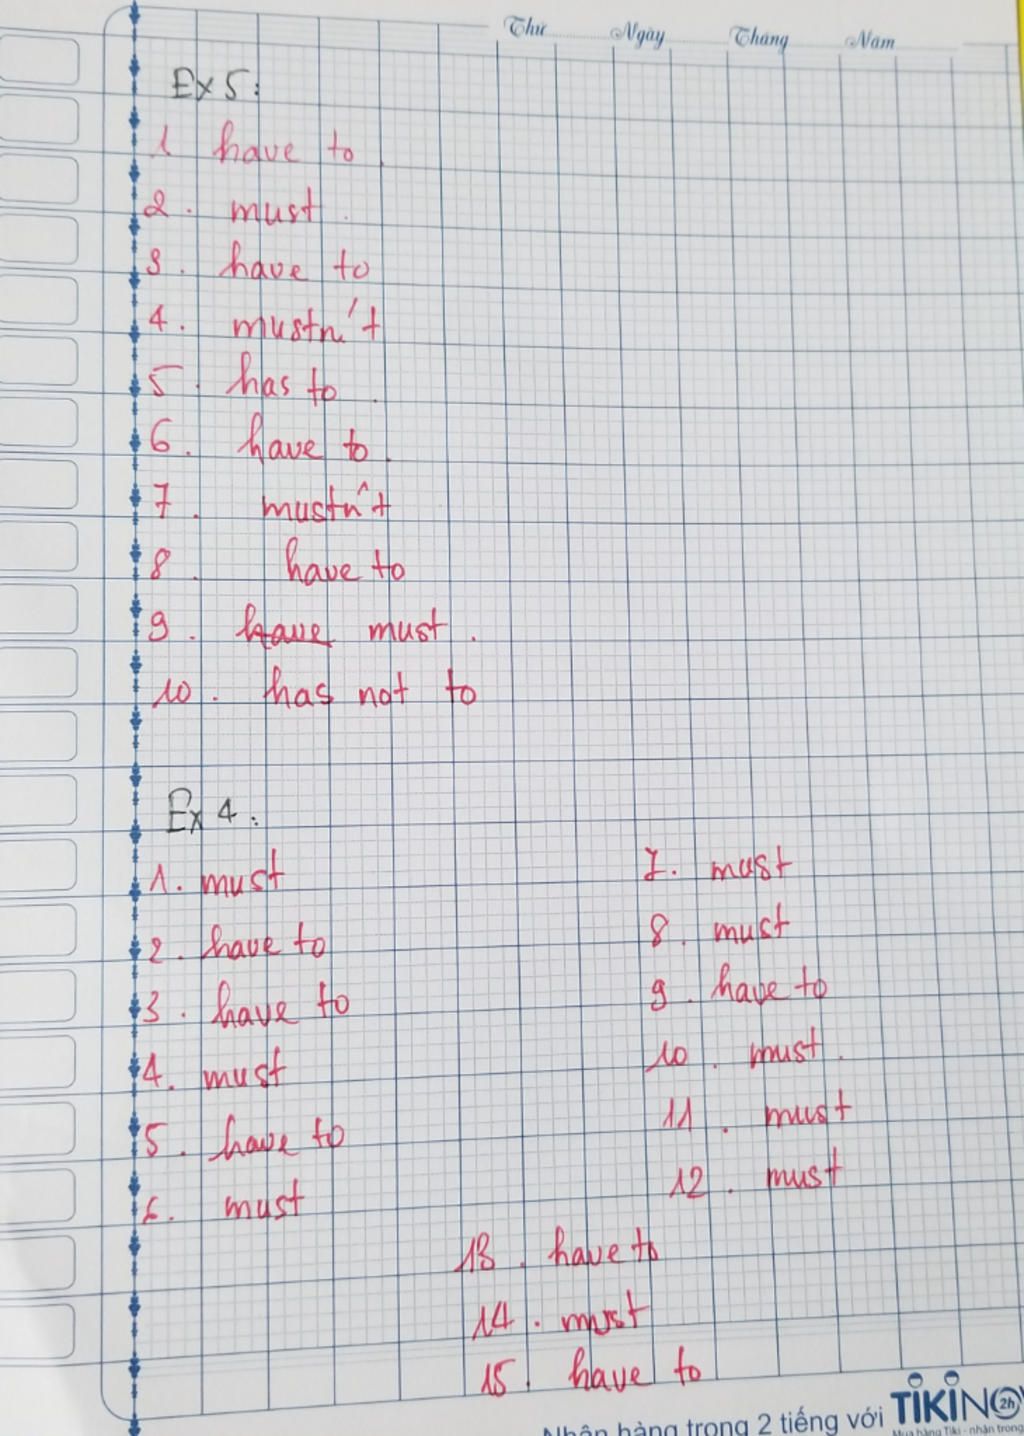 Thứ Ngày Tháng Năm
Ex 5:
1 have to.
2. must.
3. have to
4. mustn't
5. has to.
6. have to.
7. mustn't
8. have to
9. have must.
10. has not to
Ex 4:
1. must
2. have to
3. have to
4. must
5. have to
6. must
7. must
8. must
9. have to
10. must.
11. must
12. must
13. have to
14. must
15. have to
Nhận hàng trong 2 tiếng với TIKINOW 2h
Mua hàng Tiki - nhận trong